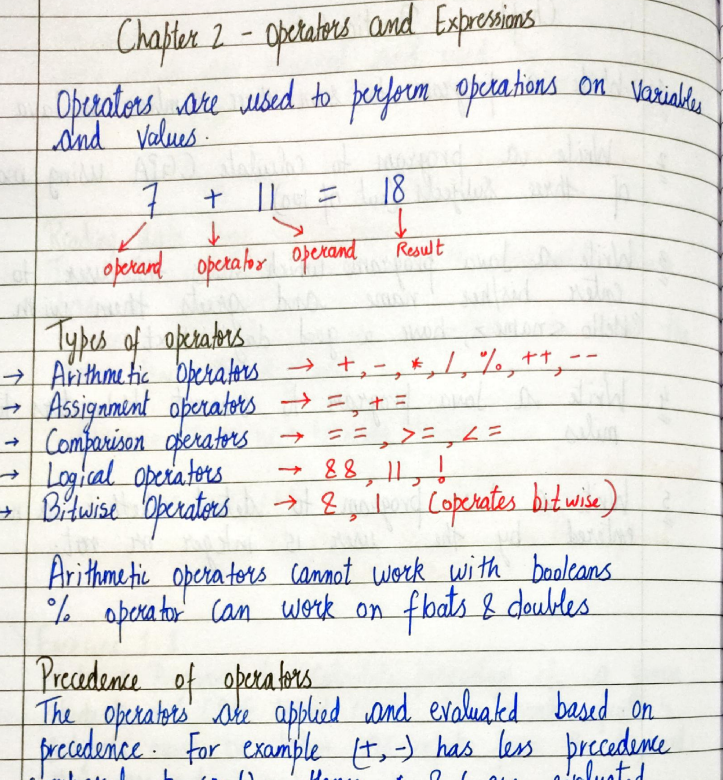 Chapter 2 - Operators and Expressions
Operators are used to perform operations on variables
and values.
7 + 11 = 18
operand operator operand Result
Types of operators
→ Arithmetic Operators → +, -, *, /, %, ++, --
→ Assignment operators → =, +=
→ Comparison operators → ==, >=, <=
→ Logical operators → &&, ||, !
→ Bitwise Operators → &, (operates bitwise)
Arithmetic operators cannot work with booleans
% operator can work on floats & doubles
Precedence of operators
The operators are applied and evaluated based on
precedence. For example (+, -) has less precedence